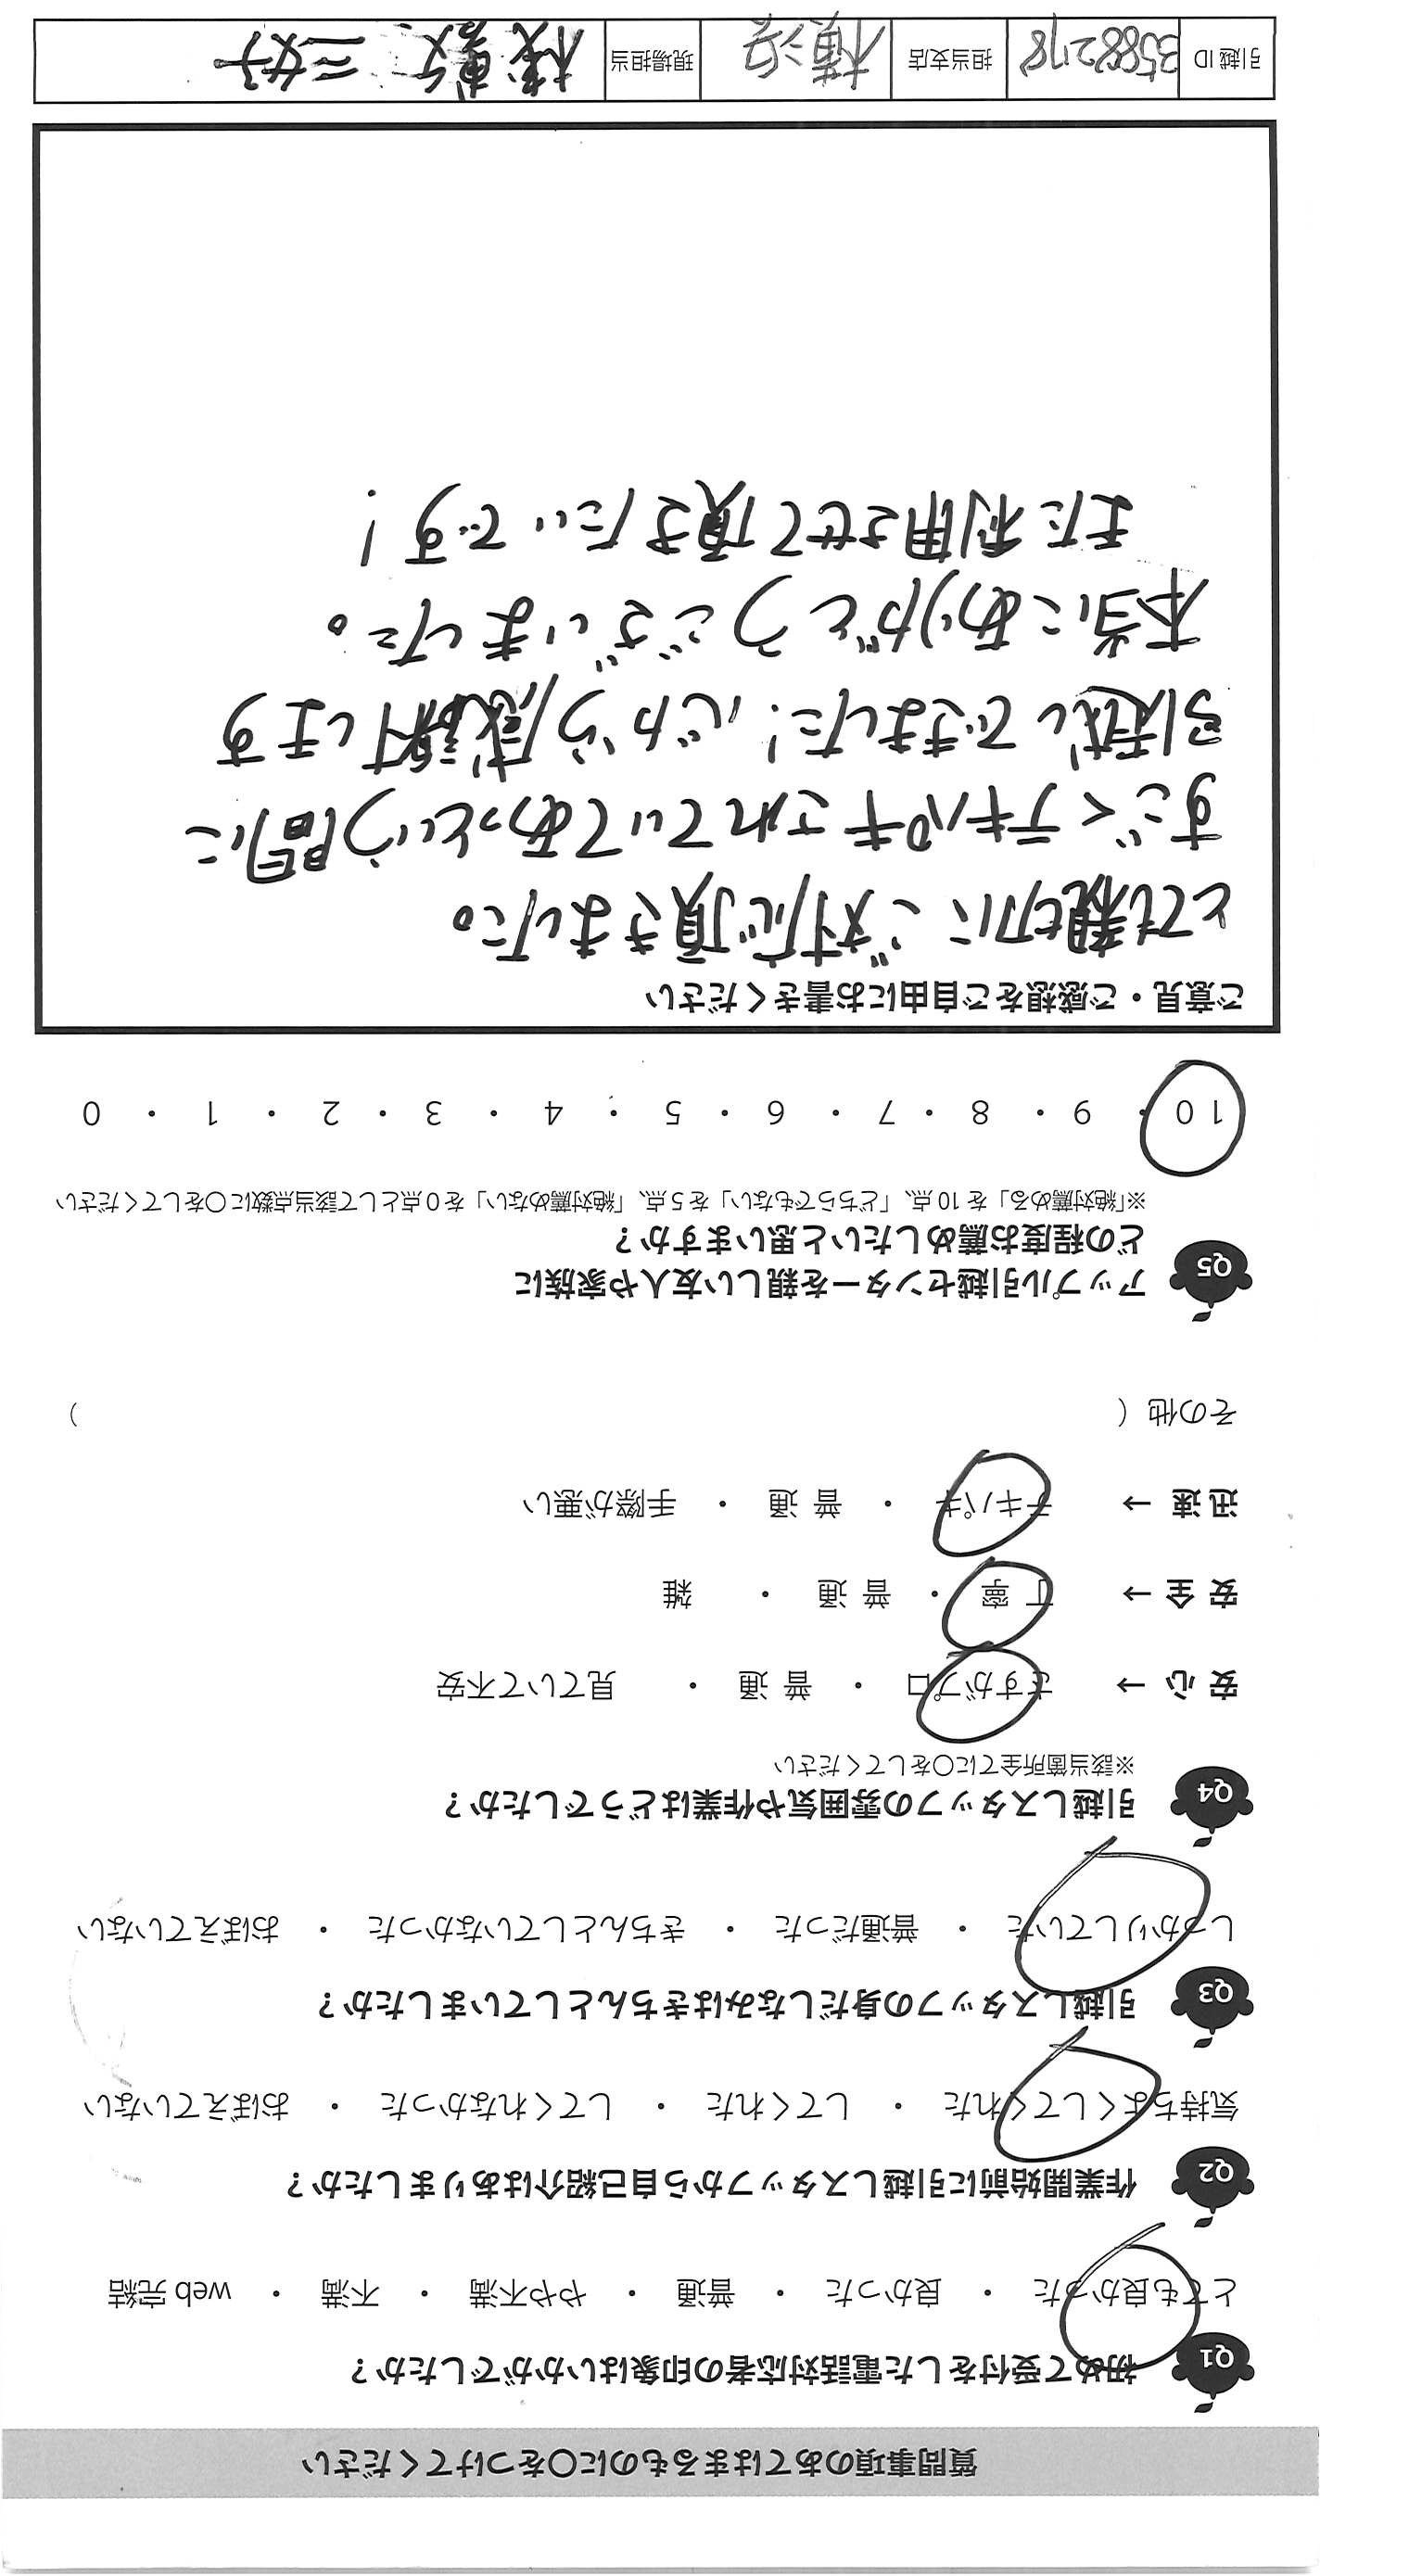 質問事項のあてはまるものに○をつけてください
Q1 初めて受付をした電話対応者の印象はいかがでしたか?
とても良かった ・ 良かった ・ 普通 ・ やや不満 ・ 不満 ・ web 完結
Q2 作業開始前に引越しスタッフから自己紹介はありましたか?
気持ちよくしてくれた ・ してくれた ・ してくれなかった ・ おぼえていない
Q3 引越しスタッフの身だしなみはきちんとしていましたか?
しっかりしていた ・ 普通だった ・ きちんとしていなかった ・ おぼえていない
Q4 引越しスタッフの雰囲気や作業はどうでしたか?
※該当箇所全てに○をしてください
安 心 → さすがプロ ・ 普 通 ・ 見ていて不安
安 全 → 丁 寧 ・ 普 通 ・ 雑
迅 速 → テキパキ ・ 普 通 ・ 手際が悪い
その他 ( )
Q5 アップル引越センターを親しい友人や家族に
どの程度お薦めしたいと思いますか?
※「絶対薦める」を 10 点、「どちらでもない」を 5 点、「絶対薦めない」を 0 点として該当点数に○をしてください
10 ・ 9 ・ 8 ・ 7 ・ 6 ・ 5 ・ 4 ・ 3 ・ 2 ・ 1 ・ 0
ご意見・ご感想をご自由にお書きください
とても親切にご対応頂きました。
すごくテキパキされていてあっという間に
引越しできました!心から感謝します
本当にありがとうございました。
また利用させて頂きたいです!
引越 ID 3588278 担当支店 横浜 現場担当